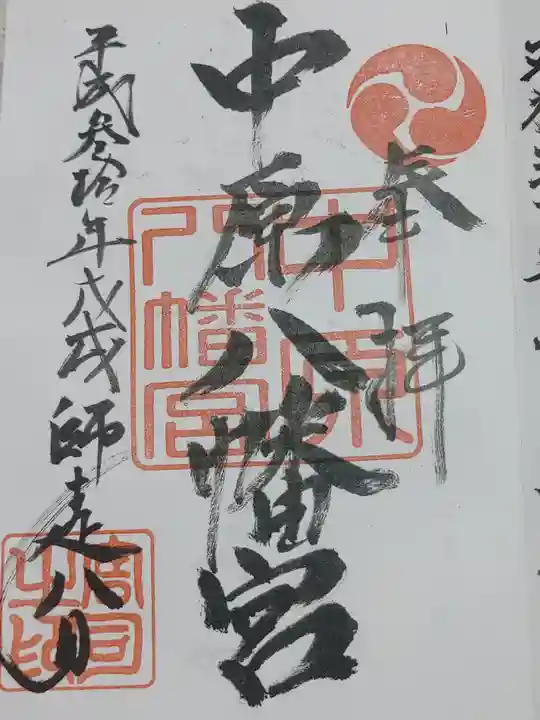 奉拝
中原八幡宮
平成参拾年戊戌師走八日
中原
八幡宮
宮司之印